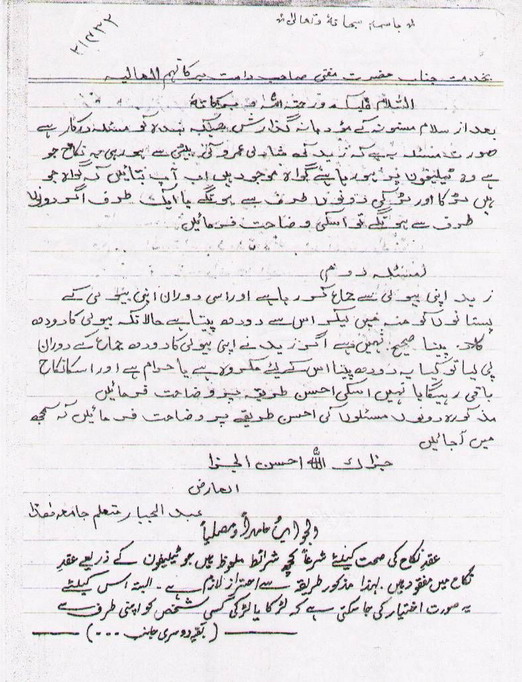 باسمہ سبحانہ وتعالیٰ
۲۱/۴۳۲
بخدمت جناب حضرت مفتی صاحب دامت برکاتہم العالیہ
السّلام علیکم ورحمۃ اللہ وبرکاتہ
بعد از سلام مسنون کے مؤدبانہ گذارش ہیکہ بندہ کو مسئلہ درکار ہے
صورت مسئلہ یہ ہے کہ زید کی شادی عمرو کی بیٹی سے ہو رہی ہے نکاح جو
ہے وہ ٹیلیفون پر ہو رہا ہے گواہ موجود ہیں اب آپ بتائیں کہ گواہ جو
ہیں لڑکا اور لڑکی دونوں طرف سے ہونگے یا ایک طرف اگر دونوں
طرف سے ہونگے تو اسکی وضاحت فرمائیں
مسئلہ دوم
زید اپنی بیوی سے جماع کر رہا ہے اور اسی دوران اپنی بیوی کے
پستانوں کو منہ میں لیکر اس سے دودھ پیتا ہے حالانکہ بیوی کا دودھ
کا پینا صحیح نہیں ہے اگر زید نے اپنی بیوی کا دودھ جماع کے دوران
پی لیا تو کیا یہ دودھ پینا اس کے لیئے مکروہ ہے یا حرام ہے اور اسکا نکاح
باقی رہیگا یا نہیں اسکی احسن طریقہ پر وضاحت فرمائیں
مذکورہ دونوں مسئلوں کی احسن طریقے پر وضاحت فرمائیں کہ سمجھ
میں آجائیں
جزاک اللہ احسن الجزا
العارض
عبد الجبار متعلم جامعہ ھذا
والجواب حامداً ومصلیاً
عقدِ نکاح کی صحت کیلئے شرعاً کچھ شرائط ملحوظ ہیں جو ٹیلیفون کے ذریعے عقدِ
نکاح میں مفقود ہیں۔ لہذا مذکور طریقہ سے احتراز لازم ہے۔ البتہ اس کیلئے
یہ صورت اختیار کی جا سکتی ہے کہ لڑکا یا لڑکی کسی شخص کو اپنی طرف سے
(بقیہ دوسری جانب ۔۔۔)